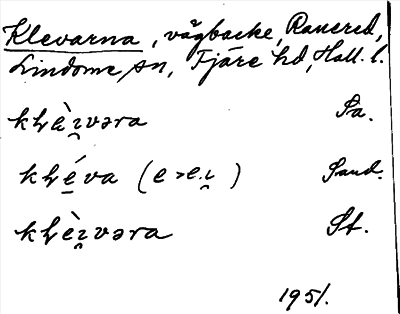 Klevarna, vägbacke, Ranered,
Lindome sn, Fjäre hd, Hall. l.
kḷèi̯vəra Sa.
kḷé̱va (e > e.i̯ ) Sand.
kḷèi̯vəra St.
1951.